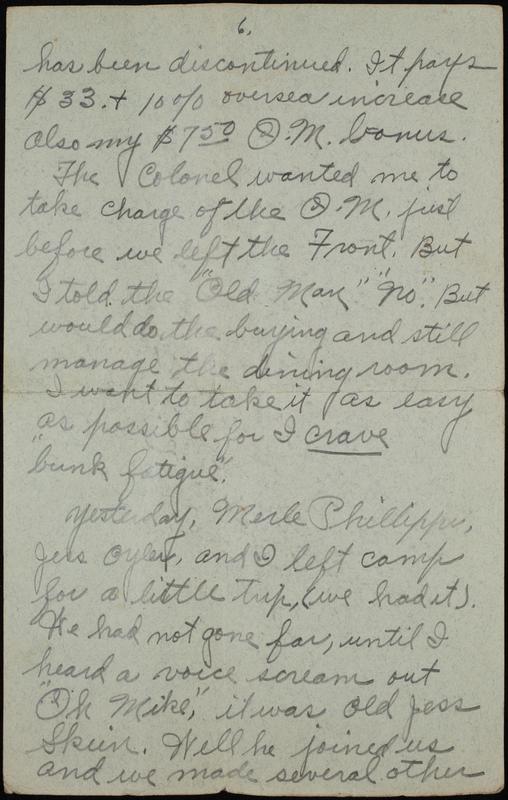 6.
has been discontinued. It pays
$33. + 10% oversea increase
also my $7.50 O.M. bonus.
The Colonel wanted me to
take charge of the O.M. just
before we left the Front. But
I told the "Old Man" "No". But
would do the buying and still
manage the dining room.
I want to take it as easy
as possible for I crave
"bunk fatigue".
Yesterday, Merle Phillippi,
Jess Oyler, and I left camp
for a little trip, (we had it).
We had not gone far, until I
heard a voice scream out
"Oh Mike," it was old Jess
Skein. Well he joined us
and we made several other